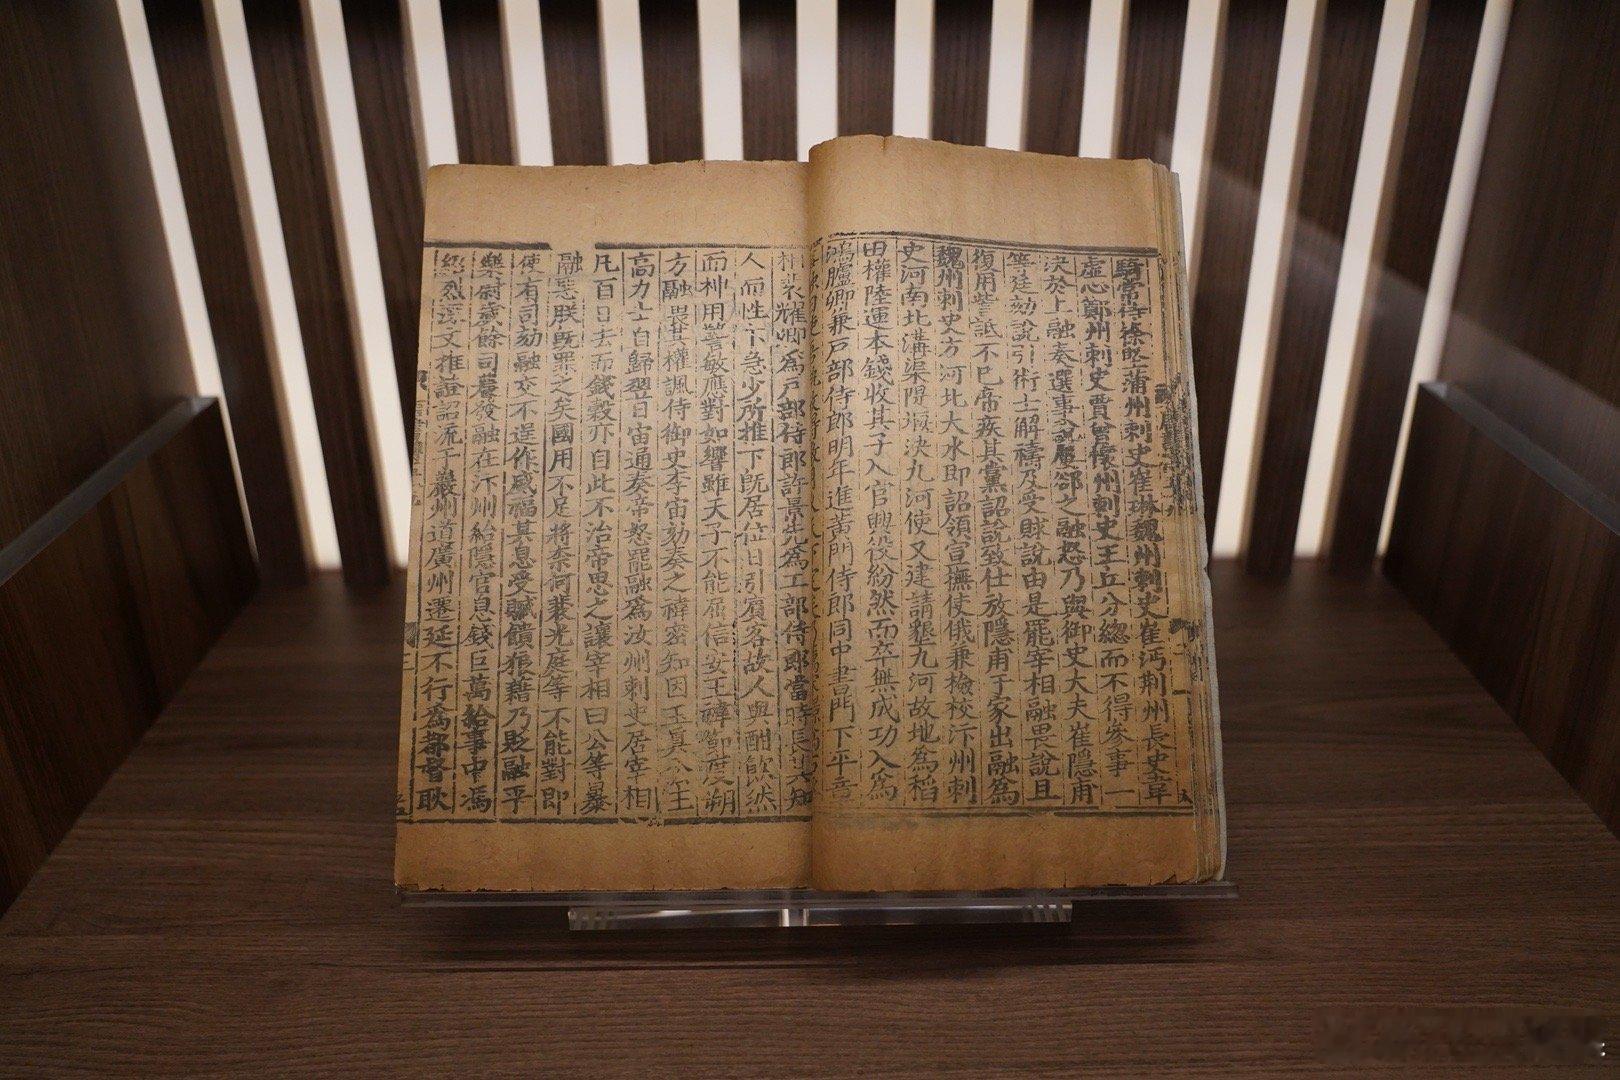 騎常侍徐堅蒲州刺史崔琳魏州刺史崔沔荊州長史韋
虛心鄭州刺史賈曾懷州刺史王丘分總而不得參事一
決於上融奏選事說屢郤之融怒乃與御史大夫崔隱甫
等廷劾說引術士解禱及受賕說由是罷宰相融畏說且
復用訾詆不已帝疾其黨詔說致仕放隱甫于家出融爲
魏州刺史方河北大水即詔領宣撫使俄兼檢校汴州刺
史河南北溝渠隄堰決九河使又建請墾九河故地爲稻
田權陸運本錢收其子入官興役紛然而卒無成功入爲
鴻臚卿兼戶部侍郎明年進黃門侍郎同中書門下平章
相裴耀卿爲戶部侍郎許景先爲工部侍郎當時長其知
人而性卞急少所推下既居位日引賓客故人與酣飲然
而神用警敏應對如響雖天子不能屈信安王禕節度朔
方融畏其權諷侍御史李宙劾奏之禕密知因玉眞公主
高力士自歸翌日宙通奏帝怒罷融爲汝州刺史居宰相
凡百日去而錢穀亦自此不治帝思之讓宰相曰公等暴
融惡朕既罪之矣國用不足將奈何裴光庭等不能對即
使有司劾融交不逞作威福其息受贓饋狼藉乃貶融平
樂尉歲餘司農發融在汴州紿隱官息錢巨萬給事中馮
紹烈深文推證詔流于巖州道廣州遷延不行爲都督耿